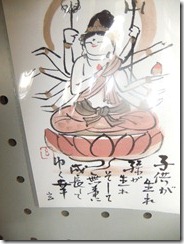 子供が
生れ
孫が
生れ
そして
無事に
成長して
ゆく幸